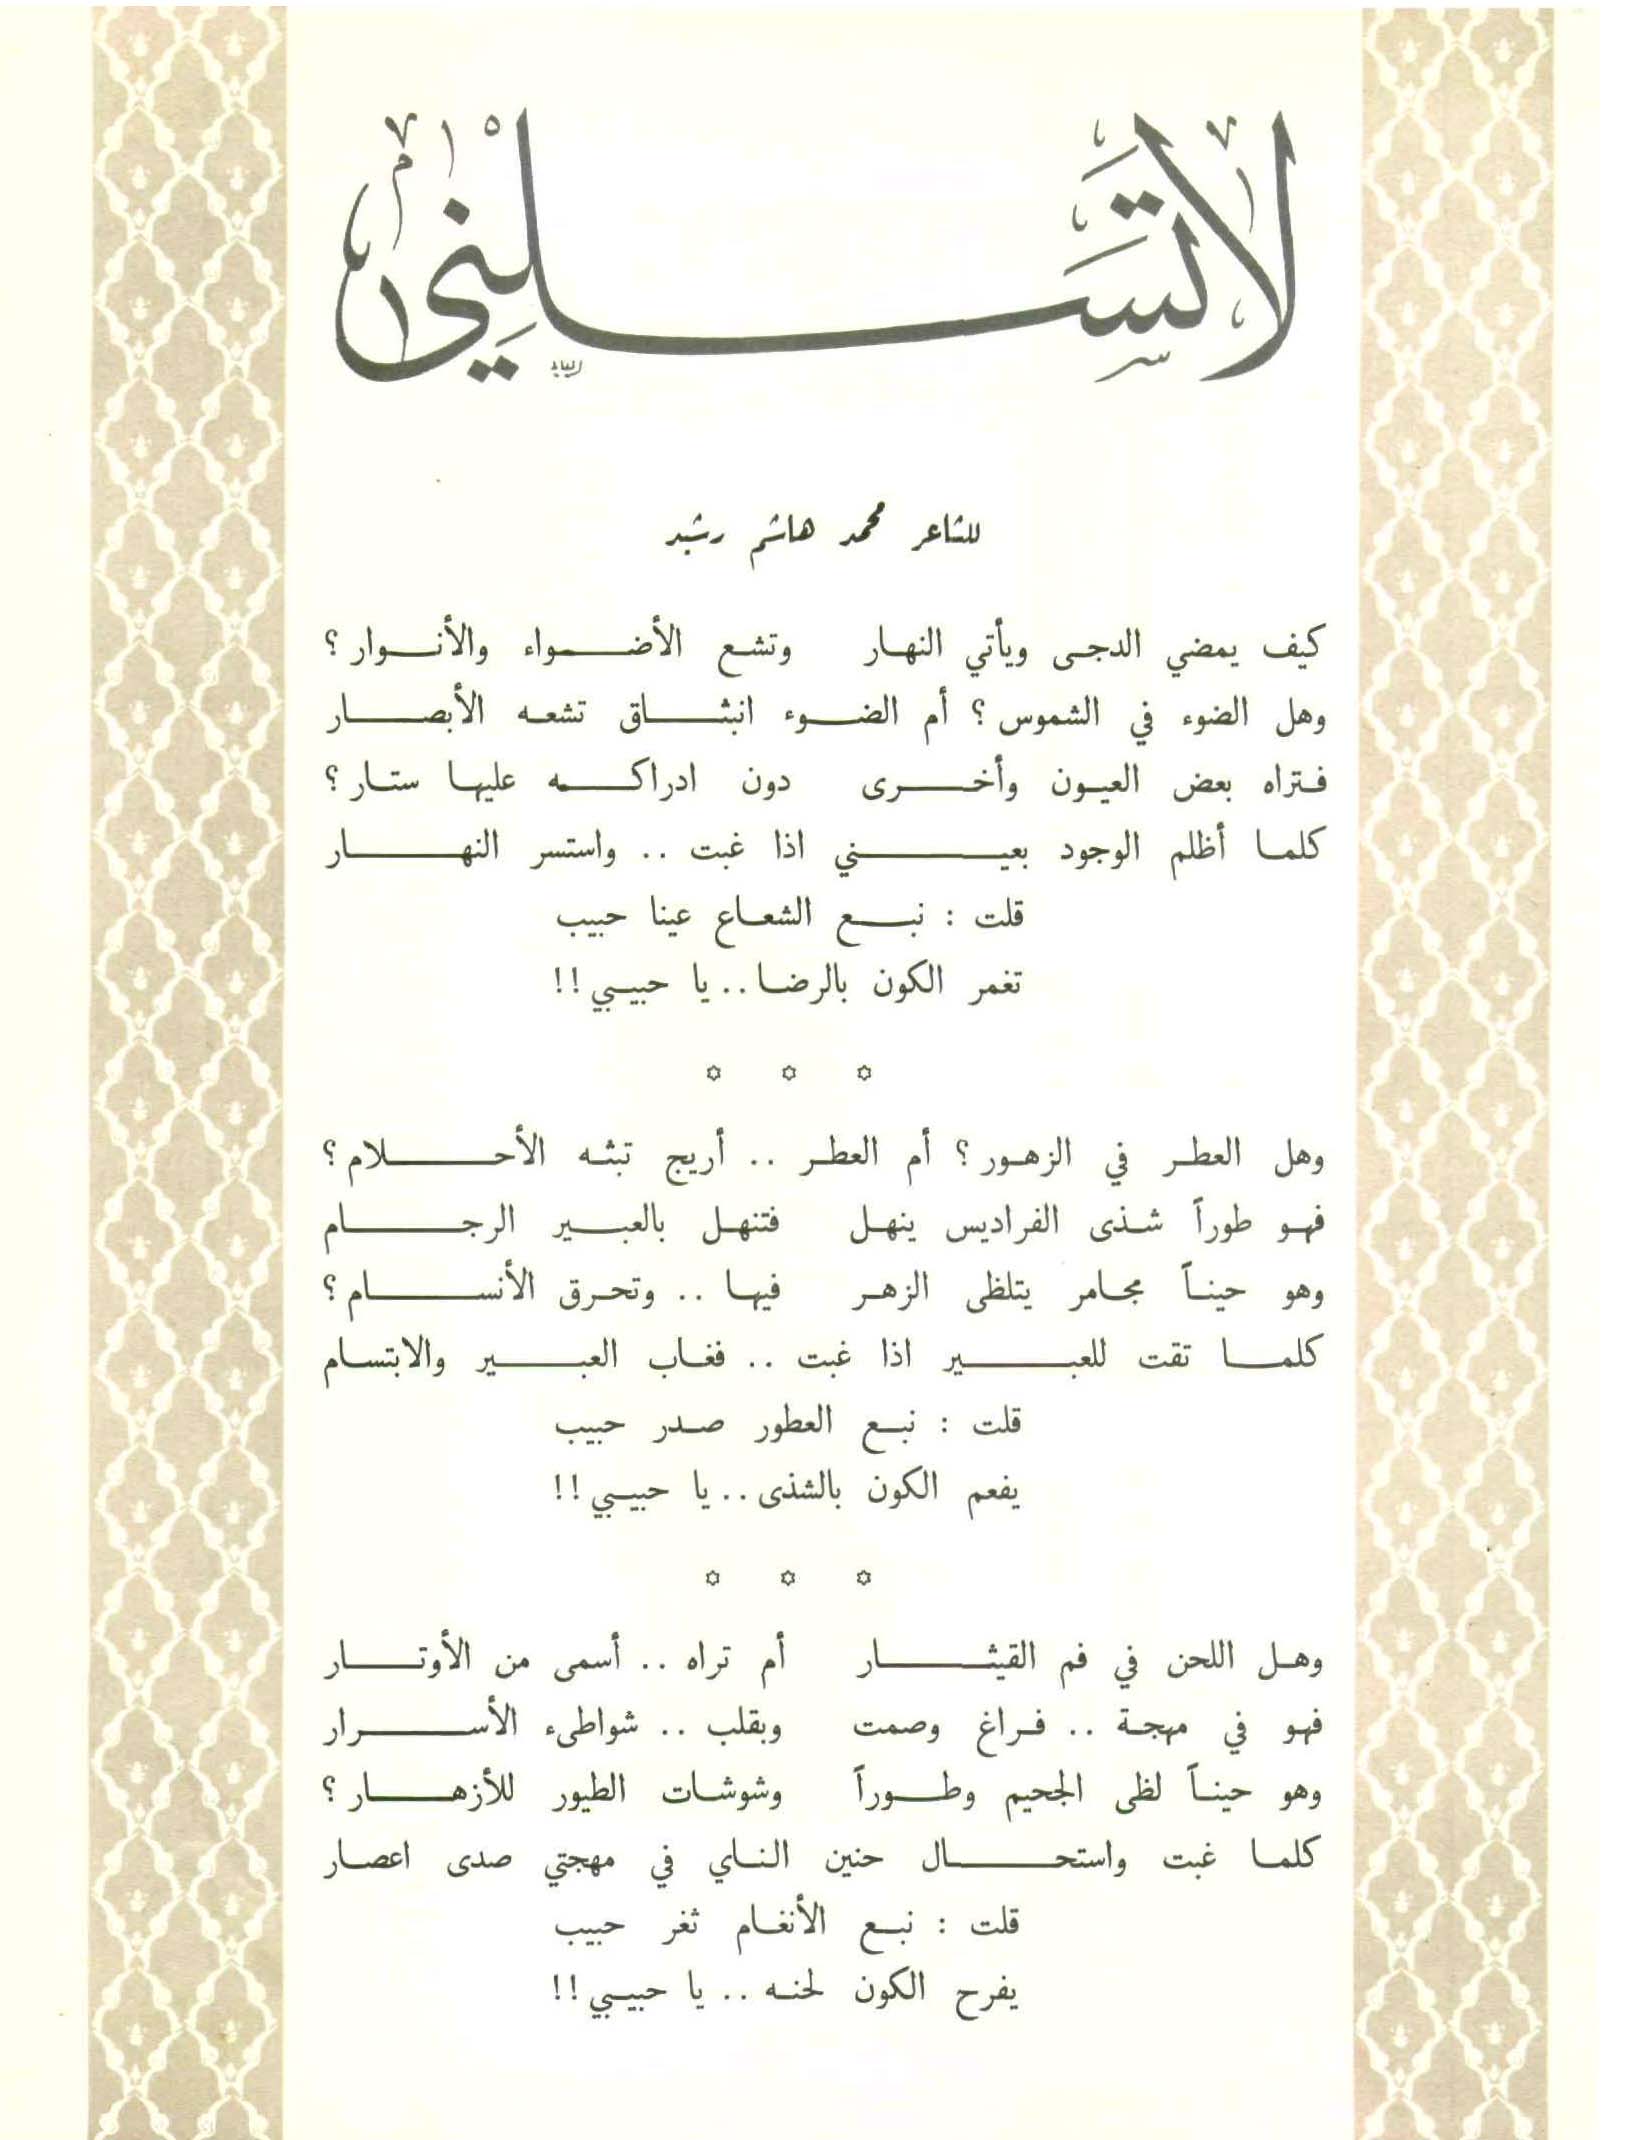 لا تَسَلْنِي
للشاعر محمد هاشم رشيد
كيف يمضي الدجى ويأتي النهار وتشع الأضواء والأنوار ؟
وهل الضوء في الشموس ؟ أم الضوء انبثاق تشعه الأبصار
فتراه بعض العيون وأخرى دون ادراكه عليها ستار ؟
كلما أظلم الوجود بعيني اذا غبت .. واستسر النهار
قلت : نبع الشعاع عينا حبيب
تغمر الكون بالرضا .. يا حبيبي !!
وهل العطر في الزهور ؟ أم العطر .. أريج تبثه الأحلام ؟
فهو طوراً شذى الفراديس ينهل فتنهل بالعبير الرجام
وهو حيناً مجامر يتلظى الزهر فيها .. وتحرق الأنسام ؟
كلما تقت للعبير اذا غبت .. فغاب العبير والابتسام
قلت : نبع العطور صدر حبيب
يفعم الكون بالشذى .. يا حبيبي !!
وهل اللحن في فم القيثار أم تراه .. أسمى من الأوتار
فهو في مهجة .. فراغ وصمت وبقلب .. شواطىء الأسرار
وهو حيناً لظى الجحيم وطوراً وشوشات الطيور للأزهار ؟
كلما غبت واستحال حنين الناي في مهجتي صدى اعصار
قلت : نبع الأنغام ثغر حبيب
يفرح الكون لحنه .. يا حبيبي !!